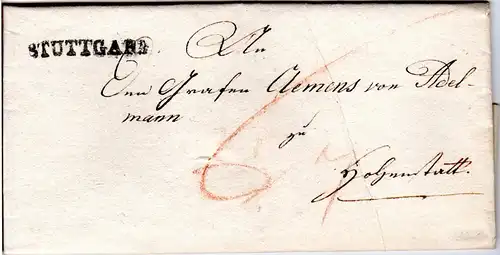 STUTTGARD
An
Den Grafen Clemens von Adel-
mann
zu
Hohenstatt.